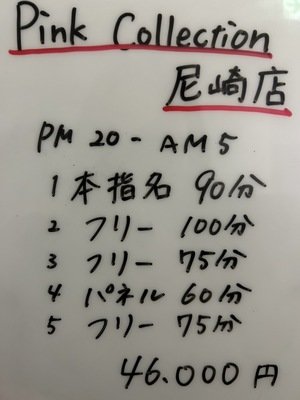 Pink Collection
尼崎店
PM 20 - AM 5
1 本指名 90分
2 フリー 100分
3 フリー 75分
4 パネル 60分
5 フリー 75分
46.000円